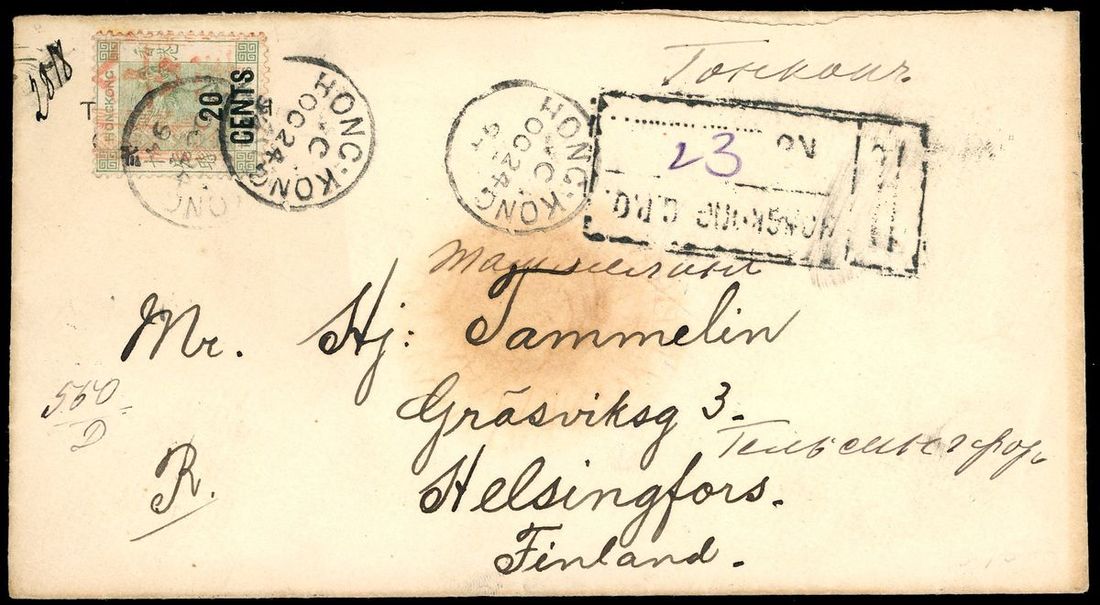 2818
20 CENTS
HONGKONG
HONG-KONG
C
OC 24
HONG-KONG
C
OC 24
97
Гонконг.
R
No
23
HONGKONG G.P.O.
Таммелин
Mr. Hj: Tammelin
Gräsviksg 3.
Гельсингфорс
Helsingfors.
Finland.
560
D
R.